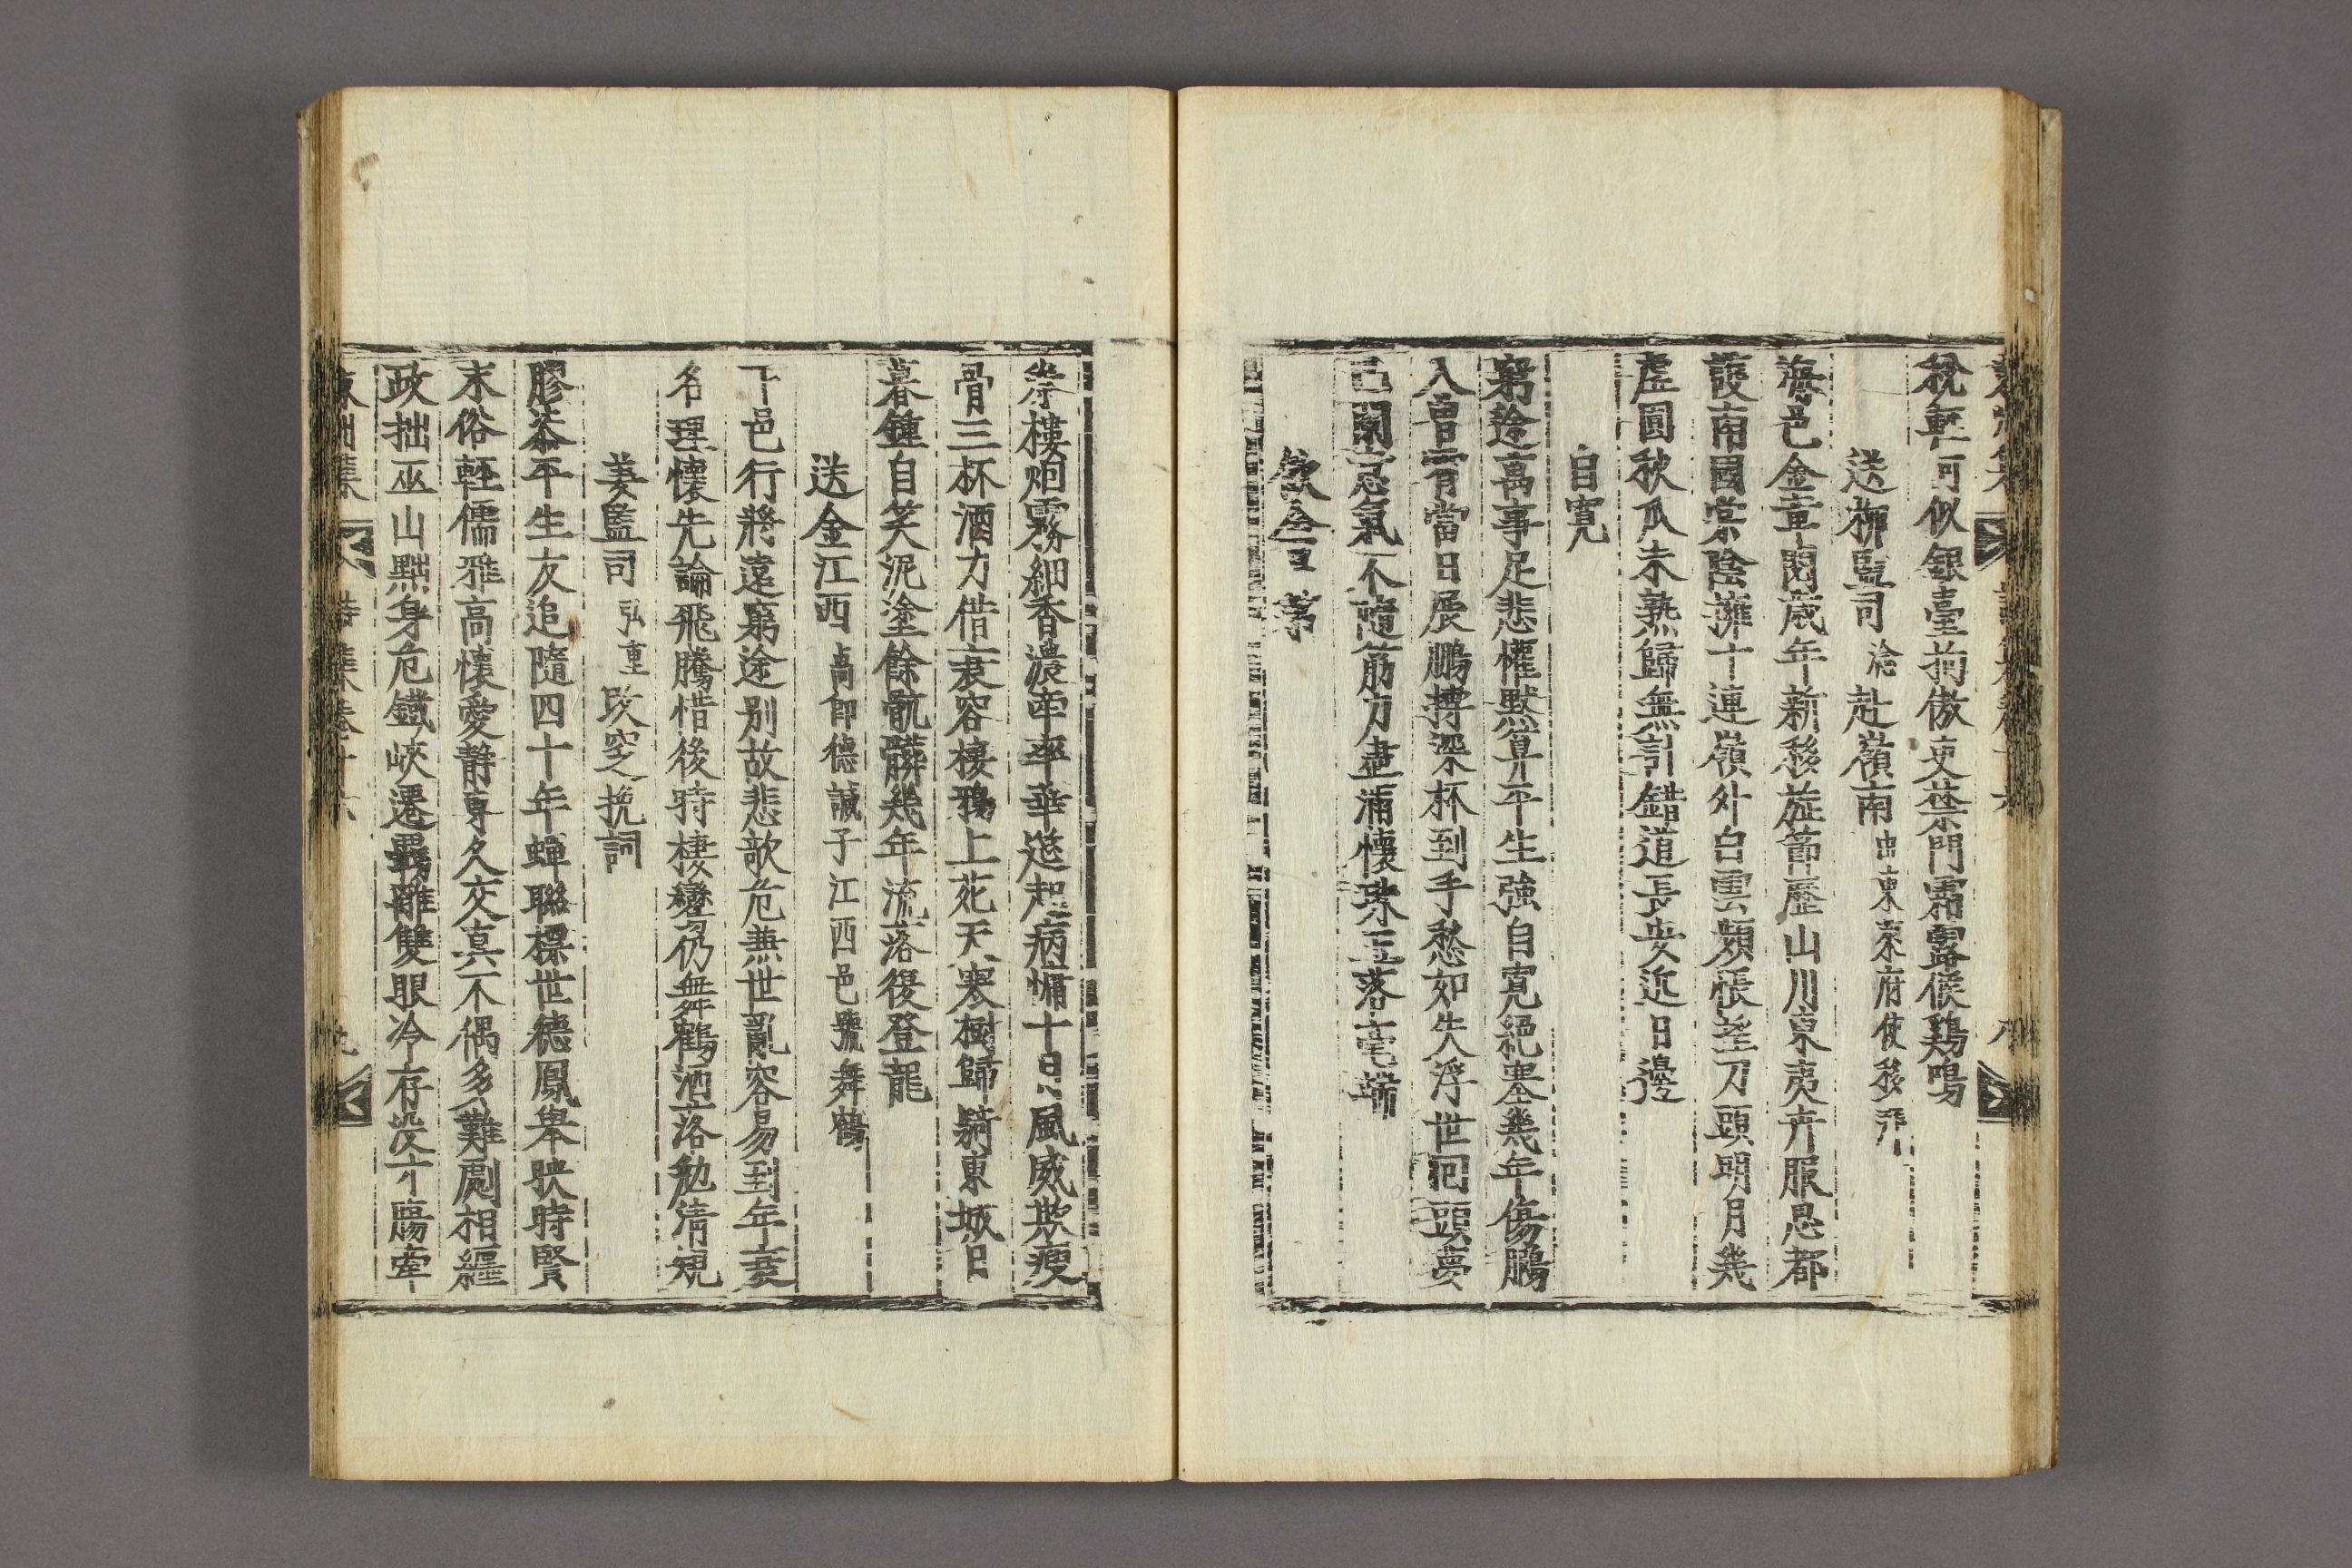 稅輕何似銀臺拘傲吏禁門霜露候鷄鳴
送柳監司 淦 赴嶺南 由東萊府使移拜
海邑金章閱歲年新移旌節歷山川東夷卉服思都
護南國棠陰擁十連嶺外白雲頻悵望刀頭明月幾
虛圓秋瓜未熟歸無引錯道長安近日邊
自寬
窮途萬事足悲懽默算平生強自寬絕塞幾年傷鵩
入曾霄當日展鵬摶深杯到手愁如失浮世回頭夢
已闌意氣不隨筋力盡滿懷珠玉落毫端
飲舍弟
岑樓炮霧細香濃牽率華筵起病慵十月風威欺瘦
骨三杯酒力借衰容棲鴉上苑天寒樹歸騎東城日
暮鍾自笑泥塗餘骯髒幾年流落後登龍
送金江西 高卽德諴子江西邑號舞鶴
下邑行將遠窮途別故悲歌危燕世亂容易到年衰
名理懷先論飛騰惜後時棲鸞仍舞鶴洒落勉淸規
姜監司 弘重 改窆挽詞
膠桼平生友追隨四十年蟬聯標世德鳳擧映時賢
末俗輕儒雅高懷愛靜專久交眞不偶多難劇相纒
政拙巫山黜身危鐵峽遷羈離雙眼冷存沒寸膓牽
疎拙集 詩集卷十六 九